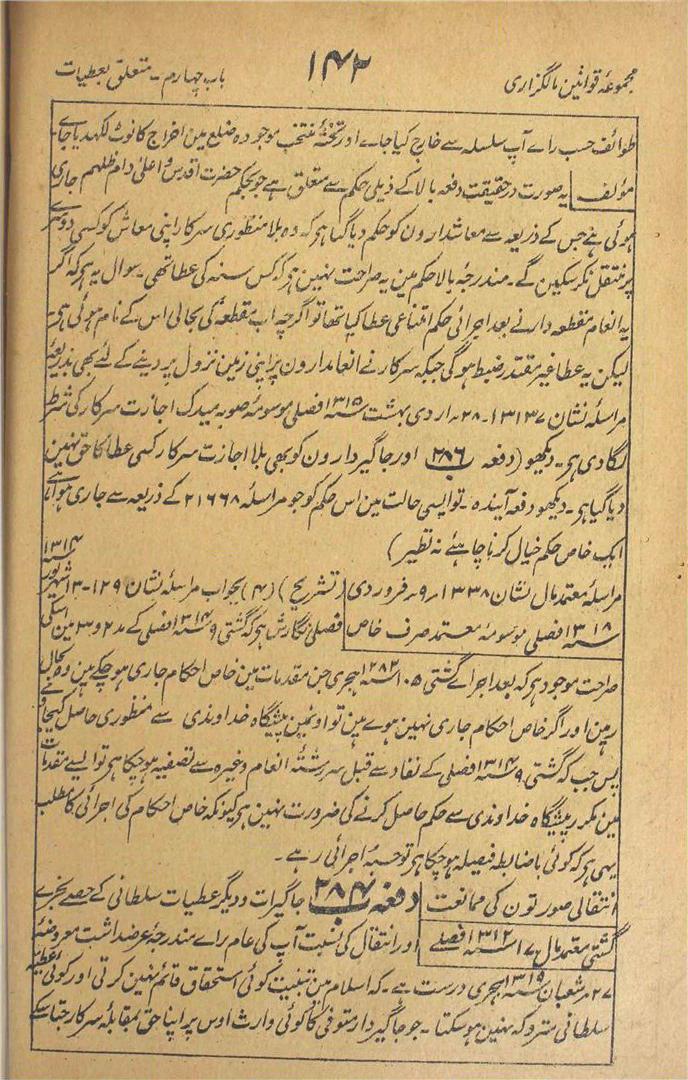 مجموعۂ قوانین مالگزاری ۱۴۲ باب چہارم۔ متعلق بعطیات
طوائف حسب راے آپ سلسلہ سے خارج کیا جاے۔ اور تختۂ منتخب موجودہ ضلع مین اخراج کا نوٹ لکھدیا جاے۔
مؤلف یہ صورت درحقیقت دفعہ بالا کے ذیلی حکم سے متعلق ہے جو بحکم حضرت اقدس و اعلیٰ دام ظلہم جاری
ہوئی ہے جس کے ذریعہ سے معاشدارون کو حکم دیا گیا ہے کہ وہ بلا منظوری سرکار اپنی معاش کو کسی دوسرے
پر منتقل نکر سکین گے۔ مندرجۂ بالا حکم مین یہ صراحت نہین ہے کہ کس سنہ کی عطا تھی۔ سوال یہ ہے کہ اگر
یہ انعام مقطعہ دار نے بعد اجرائی حکم امتناعی عطا کیا تھا تو اگرچہ اب مقطعہ کی بحالی اس کے نام ہوئی ہے۔
لیکن یہ عطا غیر مقتدر ضبط ہو گی جبکہ سرکار نے انعامدارون پر اپنی زمین نزول پر دینے کے لئے بھی بذریعۂ
مراسلہ نشان ۱۳۱۳۷۔ ۲۸۔ اردی بہشت ۱۳۱۵ سنہ فصلی موسومۂ صوبہ میدک اجازت سرکار کی شرط
لگا دی ہے۔ دیکھو (دفعہ ۲۸۶ ب اور جاگیردارون کو بھی بلا اجازت سرکار کسی عطا کا حق نہین
دیا گیا ہے۔ دیکھو دفعہ آیندہ۔ تو ایسی حالت مین اس حکم کو جو مراسلہ ۲۱۶۶۸ کے ذریعہ سے جاری ہوا ہے
ایک خاص حکم خیال کرنا چاہئے نہ نظیر)
مراسلۂ معتمد مال نشان ۱۳۳۸۔ ۹۔ فروردی (تشریح) (۴) بجواب مراسلہ نشان ۱۲۹۔ ۱۳ شہریور ۱۳۱۴ سنہ
۱۳۱۸ سنہ فصلی موسومۂ معتمد صرف خاص فصلی نگارش ہے کہ گشتی ۹ ۱۳۱۴ سنہ فصلی کے مد ۲ و ۳ مین اسکی
صراحت موجود ہے کہ بعد اجراے گشتی ۱۰۵ ۱۲۸۲ سنہ ہجری جن مقدمات مین خاص احکام جاری ہو چکے ہین وہ بحال
رہین اور اگر خاص احکام جاری نہین ہوے ہین تو اونمین پیشگاہ خداوندی سے منظوری حاصل کیجاے
پس جب کہ گشتی ۹ ۱۳۱۴ سنہ فصلی کے نفاد سے قبل سررشتۂ انعام وغیرہ سے تصفیہ ہو چکا ہے تو ایسے مقدمات
مین مکرر پیشگاہ خداوندی سے حکم حاصل کرنے کی ضرورت نہین ہے کیونکہ خاص احکام کی اجرائی کا مطلب
یہی ہے کہ کوئی باضابطہ فیصلہ ہو چکا ہے تو حسبہٗ اجرائی رہے۔
انتقالی صورتون کی ممانعت دفعہ ۲۸۴ ب جاگیرات و دیگر عطیات سلطانی کے حصے بخرے
گشتی معتمد مال ۱۷ ۱۳۱۲ سنہ فصلے اور انتقال کی نسبت آپ کی عام راے مندرجۂ عرضداشت معروضۂ
۲۷ شعبان ۱۳۱۹ سنہ ہجری درست ہے۔ کہ اسلام مین تبنیت کوئی استحقاق قائم نہین کرتی اور کوئی عطیۂ
سلطانی متروکہ نہین ہو سکتا۔ جو جاگیردار متوفی کا کوئی وارث اوس پر اپنا حق بمقابلہ سرکار جتا سکے